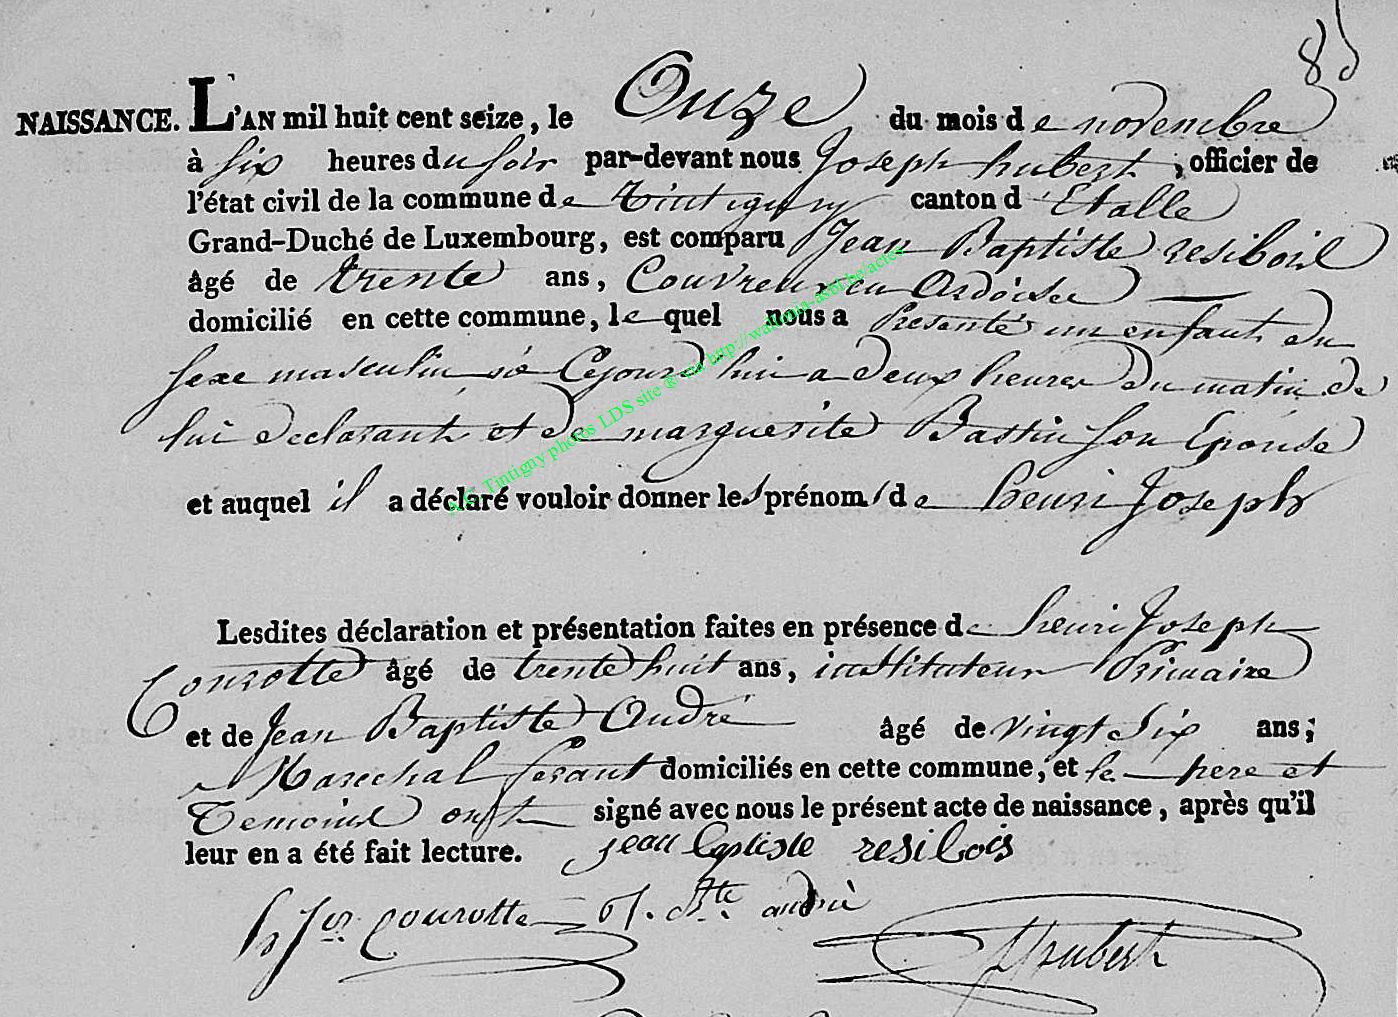 85
NAISSANCE. L'AN mil huit cent seize, le Onze du mois de novembre
à six heures du soir par-devant nous Joseph hubert, officier de
l'état civil de la commune de Tintigny canton d'Etalle
Grand-Duché de Luxembourg, est comparu Jean Baptiste resibois
âgé de trente ans, Couvreur en Ardoise
domicilié en cette commune, lequel nous a presenté un enfant du
sexe masculin né Cejourd'hui a deux heures du matin de
lui declarant et de marguerite Bastin son Epouse
et auquel il a déclaré vouloir donner les prénoms de henri Joseph
A.G. Tintigny photos LDS site ® via http://wallonia-asbl.be/actes
Lesdites déclaration et présentation faites en présence de henri Joseph
Courotte âgé de trente huit ans, instituteur Primaire
et de Jean Baptiste André âgé de vingt Six ans;
Marechal ferant domiciliés en cette commune, et le pere et
Temoins ont signé avec nous le présent acte de naissance, après qu'il
leur en a été fait lecture. jean baptiste resibois
h Jos courotte J. Bte andré
Hubert